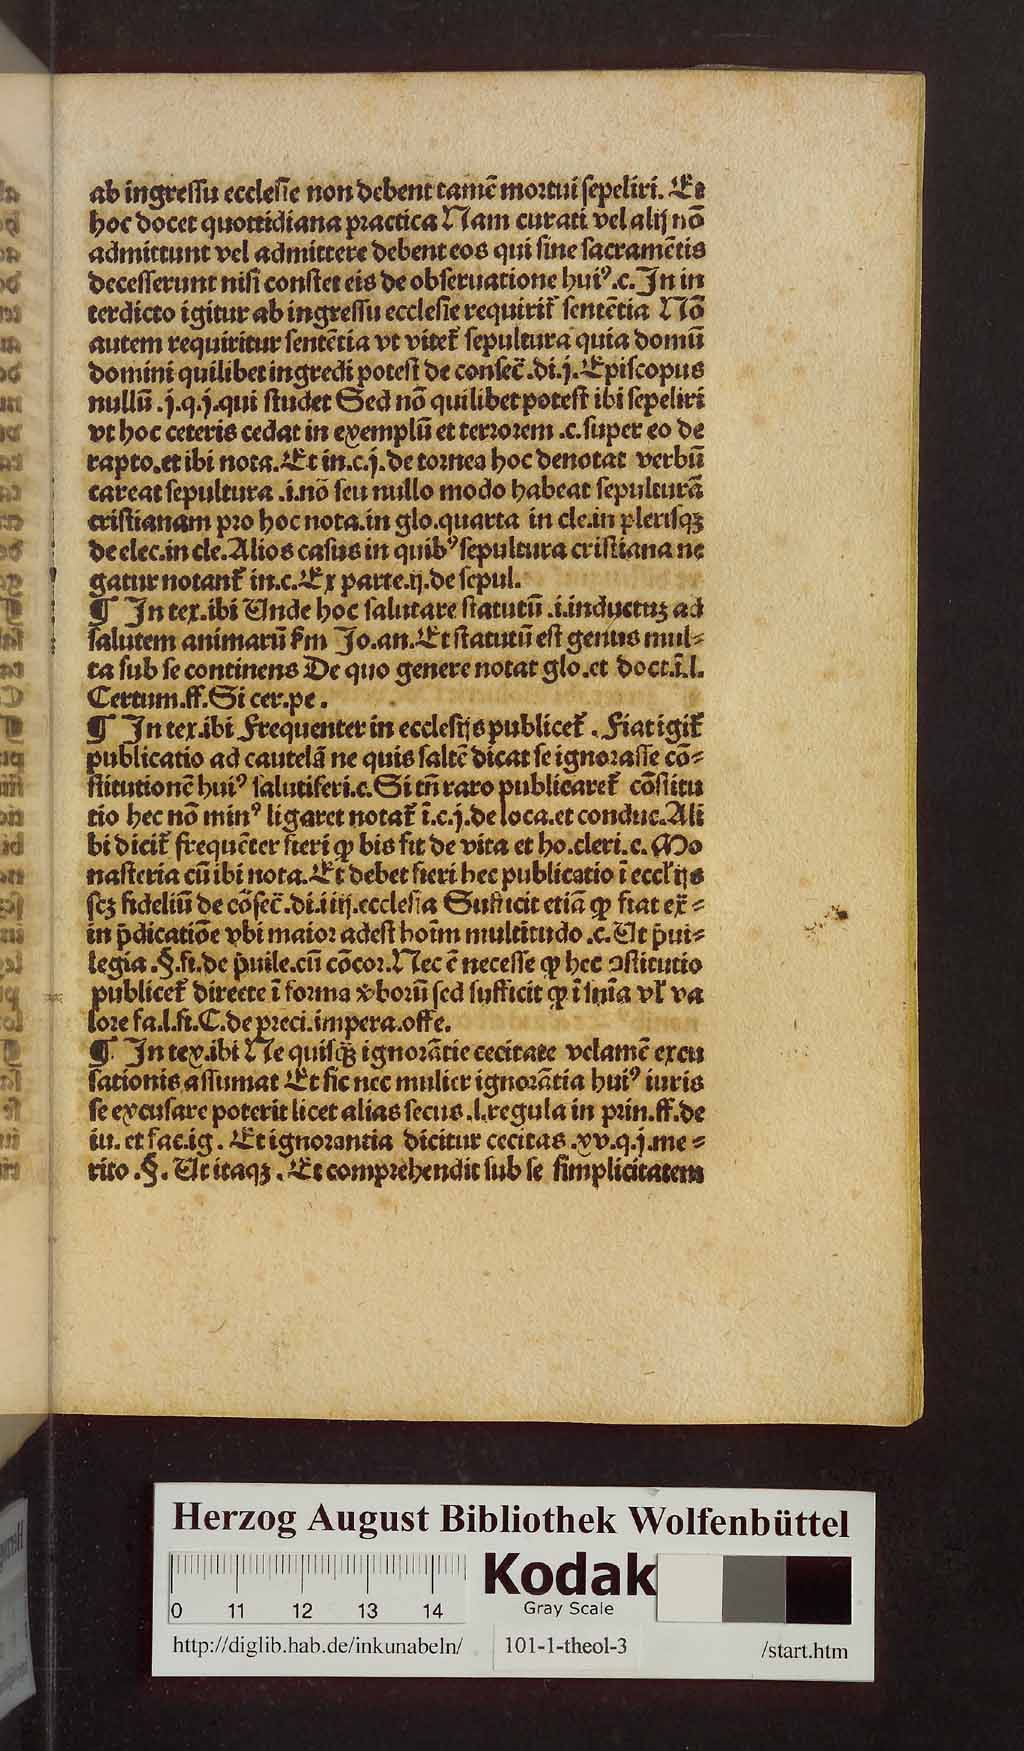 ab ingressu ecclesie non debent tamē mortui sepeliri. Et
hoc docet quottidiana practica Nam curati vel alij nō
admittunt vel admittere debent eos qui sine sacramētis
decesserunt nisi constet eis de obseruatione huiꝰ.c. In in
terdicto igitur ab ingressu ecclesie requirit̉ sentētia Nō
autem requiritur sentētia vt vitet̉ sepultura quia domū
domini quilibet ingredi potest de consec̄.di.j. Episcopus
nullū .j.q.j.qui studet Sed nō quilibet potest ibi sepeliri
vt hoc ceteris cedat in exemplū et terrorem .c.super eo de
rapto.et ibi nota. Et in.c.j.de tornea hoc denotat verbū
careat sepultura .i.nō seu nullo modo habeat sepulturā
cristianam pro hoc nota.in glo.quarta in cle.in plerisqꝫ
de elec.in cle.Alios casus in quibꝰ sepultura cristiana ne
gatur notant̉ in.c. Ex parte.ij.de sepul.
¶ In tex.ibi Unde hoc salutare statutū .i.inductuꝫ ad
salutem animarū ẜm Jo.an. Et statutū est genus mul⸗
ta sub se continens De quo genere notat glo.et doct.ī.l.
Certum.ff.Si cer.pe.
¶ In tex.ibi Frequenter in ecclesijs publicet̉. Fiat igit̉
publicatio ad cautelā ne quis saltē dicat se ignorasse cō⸗
stitutionē huiꝰ salutiferi.c. Si tn̄ raro publicaret̉ cōstitu
tio hec nō minꝰ ligaret notat̉ ī.c.j.de loca.et conduc.Ali
bi dicit̉ frequēter fieri ꝙ bis fit de vita et ho.cleri.c. Mo
nasteria cū ibi nota. Et debet fieri hec publicatio ī eccl̉ijs
scꝫ fideliū de cōsec̄.di.iiij.ecclesia Sufficit etiā ꝙ fiat ex̄⸗
in p̄dicatiōe vbi maior adest hoīm multitudo .c. Ut p̄ui⸗
legia .§.fi.de p̄uile.cū cōcor. Nec ē necesse ꝙ hec ↄstitutio
publicet̉ directe ī forma v̓borū sed sufficit ꝙ ī sn̄ia vl̓ va
lore fa.l.fi.C.de preci.impera.offe.
¶ In tex.ibi Ne quisqꝫ̄ ignorātie cecitate velamē excu
sationis assumat Et sic nec mulier ignorātia huiꝰ iuris
se excusare poterit licet alias secus .l.regula in prin.ff.de
iu. et fac.ig. Et ignorantia dicitur cecitas .xv.q.j.me⸗
rito .§. Ut itaqꝫ. Et comprehendit sub se simplicitatem
Herzog August Bibliothek Wolfenbüttel
0 11 12 13 14
Kodak
Gray Scale
http://diglib.hab.de/inkunabeln/ 101-1-theol-3 /start.htm